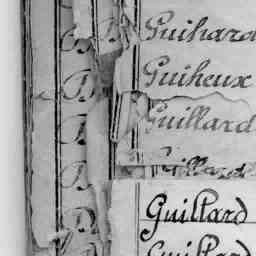 Guihard
Guiheux
Guillard
Guillard
Guillard
Guillard